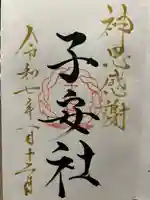 神恩感謝
子安社
令和七年一月十三日